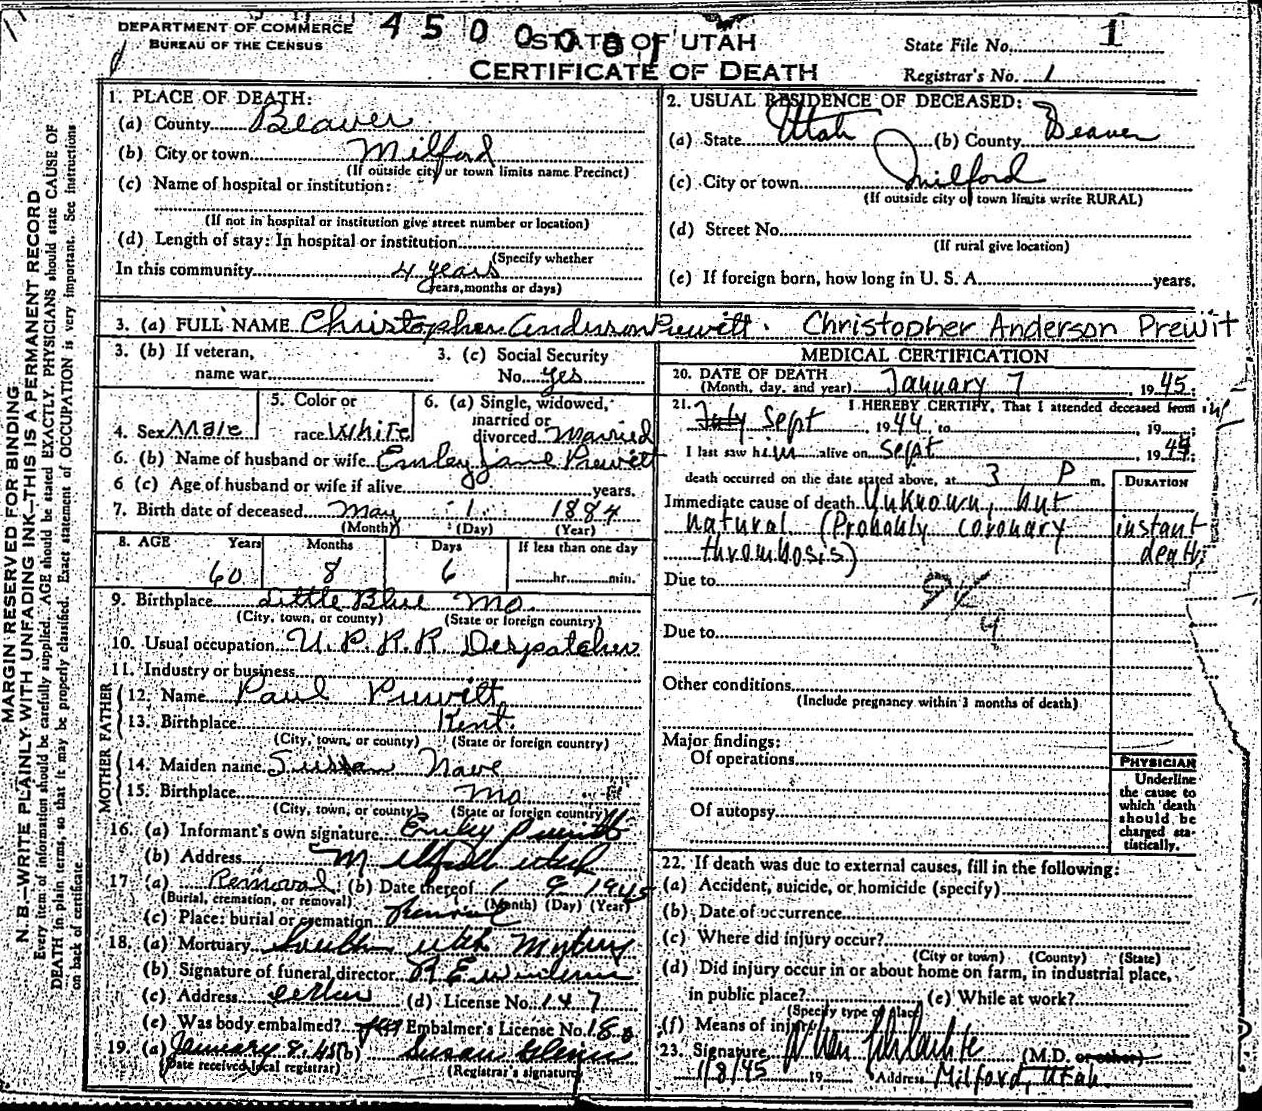 DEPARTMENT OF COMMERCE
BUREAU OF THE CENSUS
STATE OF UTAH
CERTIFICATE OF DEATH
State File No. 1
Registrar's No. 1
MARGIN RESERVED FOR BINDING
N. B.—WRITE PLAINLY, WITH UNFADING INK—THIS IS A PERMANENT RECORD
Every item of information should be carefully supplied. AGE should be stated EXACTLY. PHYSICIANS should state CAUSE OF
DEATH in plain terms, so that it may be properly classified. Exact statement of OCCUPATION is very important. See instructions
on back of certificate
1. PLACE OF DEATH:
(a) County Beaver
(b) City or town Milford
(If outside city or town limits name Precinct)
(c) Name of hospital or institution:
(If not in hospital or institution give street number or location)
(d) Length of stay: In hospital or institution
(Specify whether
In this community 4 years
years, months or days)
2. USUAL RESIDENCE OF DECEASED:
(a) State Utah (b) County Beaver
(c) City or town Milford
(If outside city or town limits write RURAL)
(d) Street No.
(If rural give location)
(e) If foreign born, how long in U. S. A. years.
3. (a) FULL NAME Christopher Anderson Prewitt. Christopher Anderson Prewit
3. (b) If veteran,
name war
3. (c) Social Security
No. yes
4. Sex Male
5. Color or
race White
6. (a) Single, widowed,
married or
divorced Married
6. (b) Name of husband or wife Emley Jane Prewitt
6 (c) Age of husband or wife if alive years.
7. Birth date of deceased May 1 1884
(Month) (Day) (Year)
8. AGE Years Months Days If less than one day
60 8 6 hr. min.
9. Birthplace Little Blue Mo.
(City, town, or county) (State or foreign country)
10. Usual occupation U. P. R. R. Despatcher
11. Industry or business
FATHER
12. Name Paul Prewitt
13. Birthplace Kent.
(City, town, or county) (State or foreign country)
MOTHER
14. Maiden name Sussan Nave
15. Birthplace Mo
(City, town, or county) (State or foreign country)
16. (a) Informant's own signature Emley Prewitt
(b) Address Milford Utah
17 (a) Removal (b) Date thereof 1 9 1945
(Burial, cremation, or removal) (Month) (Day) (Year)
(c) Place: burial or cremation
18. (a) Mortuary South Utah Mortuary
(b) Signature of funeral director
(c) Address (d) License No. 147
(e) Was body embalmed? yes Embalmer's License No.
19. (a) January 8, 45 (b) Susan Glenn
(Date received local registrar) (Registrar's signature)
MEDICAL CERTIFICATION
20. DATE OF DEATH
(Month, day, and year) January 7, 1945;
21. I HEREBY CERTIFY, That I attended deceased from
July Sept 1944 to 19
I last saw him alive on Sept 1944
death occurred on the date stated above, at 3 P m.
DURATION
Immediate cause of death Unknown, but
natural (Probably coronary
thrombosis)
instant
death
Due to
Due to
Other conditions
(Include pregnancy within 3 months of death)
Major findings:
Of operations
Of autopsy
PHYSICIAN
Underline
the cause to
which death
should be
charged sta-
tistically.
22. If death was due to external causes, fill in the following:
(a) Accident, suicide, or homicide (specify)
(b) Date of occurrence
(c) Where did injury occur?
(City or town) (County) (State)
(d) Did injury occur in or about home on farm, in industrial place,
in public place? (e) While at work?
(Specify type of place)
(f) Means of injury
23. Signature (M.D. or other)
1/8/45 19 Address Milford, Utah.